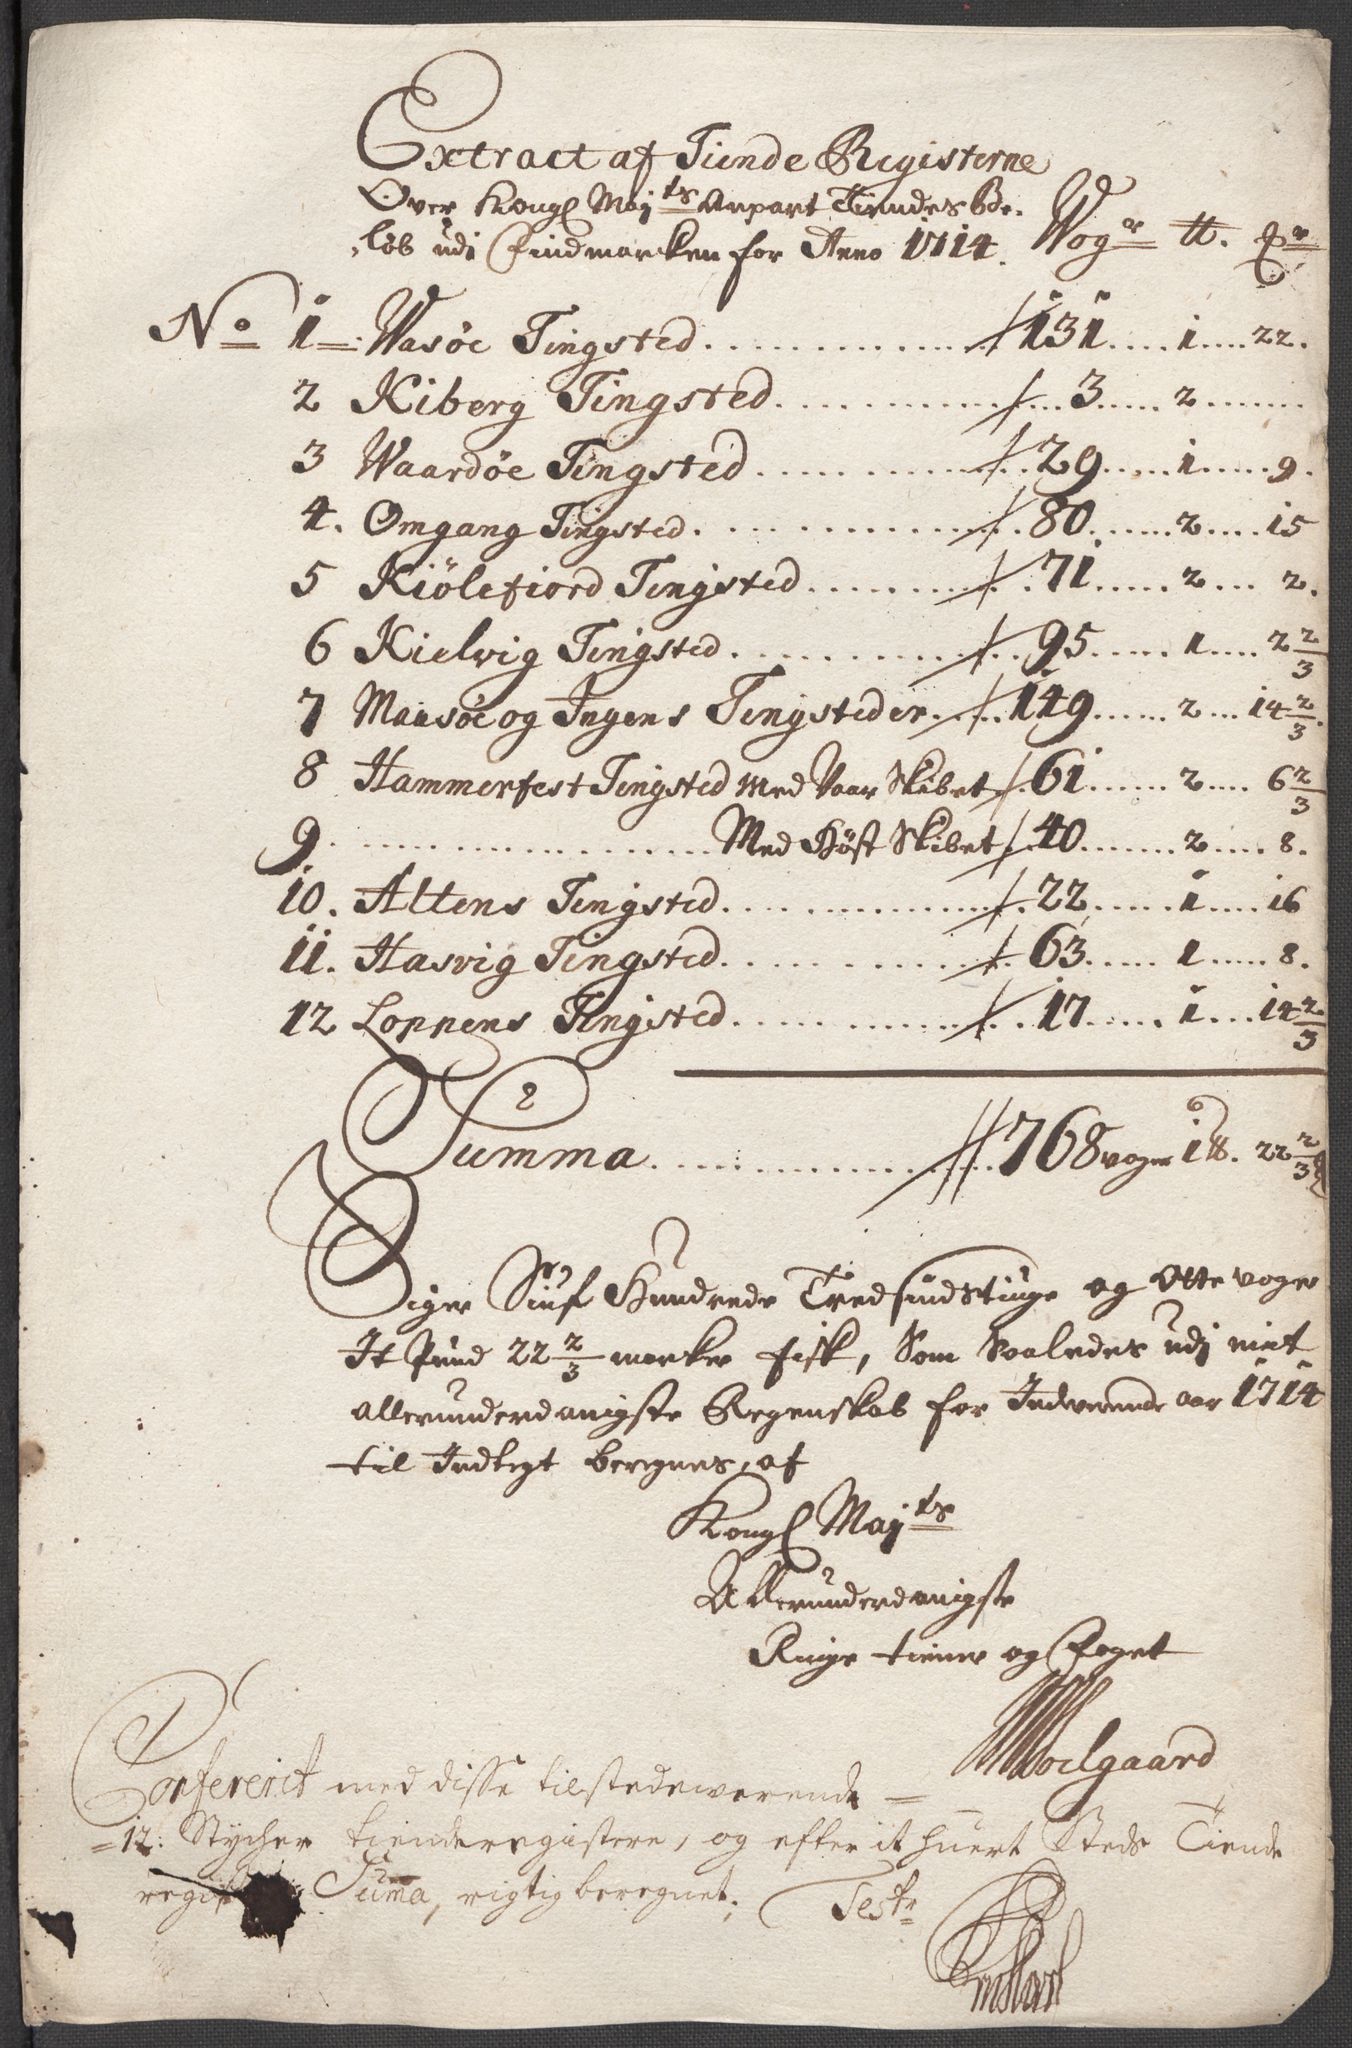 Extract af Tiende Registerne
Over Kongl Maj:ts Anpart Tiendes Be-
løb udj Findmarcken for Anno 1714. Woger ℔. Mr
No 1 Wasöe Tingsted 131 1 22.
2 Kiberg Tingsted 3 2
3 Waardöe Tingsted 29 1 9.
4. Omgang Tingsted. 80 2 15
5 Kiölefiord Tingsted 71 2 2.
6 Kielvig Tingsted 95 1 2 2/3
7 Maasöe og Ingens Tingsteder 149 2 14 2/3.
8 Hammerfest Tingsted Med Vaar Skibet 61 2 6 2/3
9 Med Höst Skibet 40 2 8.
10. Altens Tingsted 22 1 16
11. Hasvig Tingsted 63 1 8.
12 Loppens Tingsted 17 1 14 2/3
Summa 768 voger 1 ℔. 22 2/3
Siger Siuf Hundrede Tredsindstiuge og Otte voger
It Pund 22 2/3 marker fisk, Som Saaledes udj mit
allerunderdanigste Regenskab for Indverende aar 1714
til Indtegt beregnes, af
Kongl Maj:ts
Allerunderdanigste
Ringe tiener og Foget
Moelgaard
Confererit med disse tilstedewerende
12: Stycher tienderegistere, og efter it huert Steds Tiende
Suma, rigtig beregnet; Test: